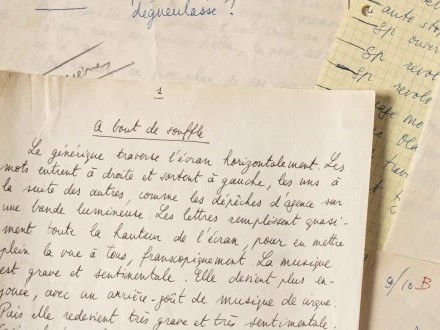 dégueulasse !
1
A bout de souffle
Le générique traverse l'écran horizontalement. Les
mots entrent à droite et sortent à gauche, les uns à
la suite des autres, comme les dépêches d'agence sur
une bande lumineuse. Les lettres remplissent quasi-
ment toute la hauteur de l'écran, pour en mettre
plein la vue à tous, franscopiquement. La musique
est grave et sentimentale. Elle devient plus en-
jouée, avec un arrière-goût de musique de cirque.
Puis elle redevient très grave et très sentimentale.
auto stop
Sp ouver
Sp revol
Sp revol
9/10 B